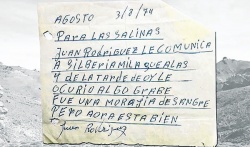 AGOSTO 3/8/74
PARA LAS SALINAS
JUAN RODRIGUEZ LE COMUNICA
A SILBERIA MILA QUE ALAS
Y DE LA TARDE DE OY LE
OCURIO ALGO GRABE
FUE UNA MORAJIA DE SANGRE
PERO AORA ESTA BIEN
Juan Rodriguez